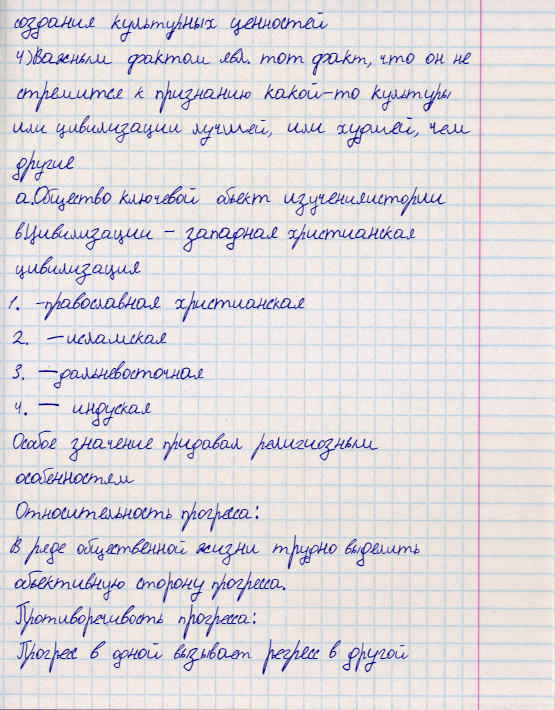 создания культурных ценностей
4) Важным фактом явл. тот факт, что он не
стремится к признанию какой-то культуры
или цивилизации лучшей, или худшей, чем
другие
а. Общество ключевой объект изучения истории
в. Цивилизации – западная христианская
цивилизация
1. -православная христианская
2. —исламская
3. —дальневосточная
4. — индуская
Особое значение придавал религиозным
особенностям
Относительность прогресса:
В ряде общественной жизни трудно выделить
объективную сторону прогресса.
Противоречивость прогресса:
Прогресс в одной вызывает регресс в другой